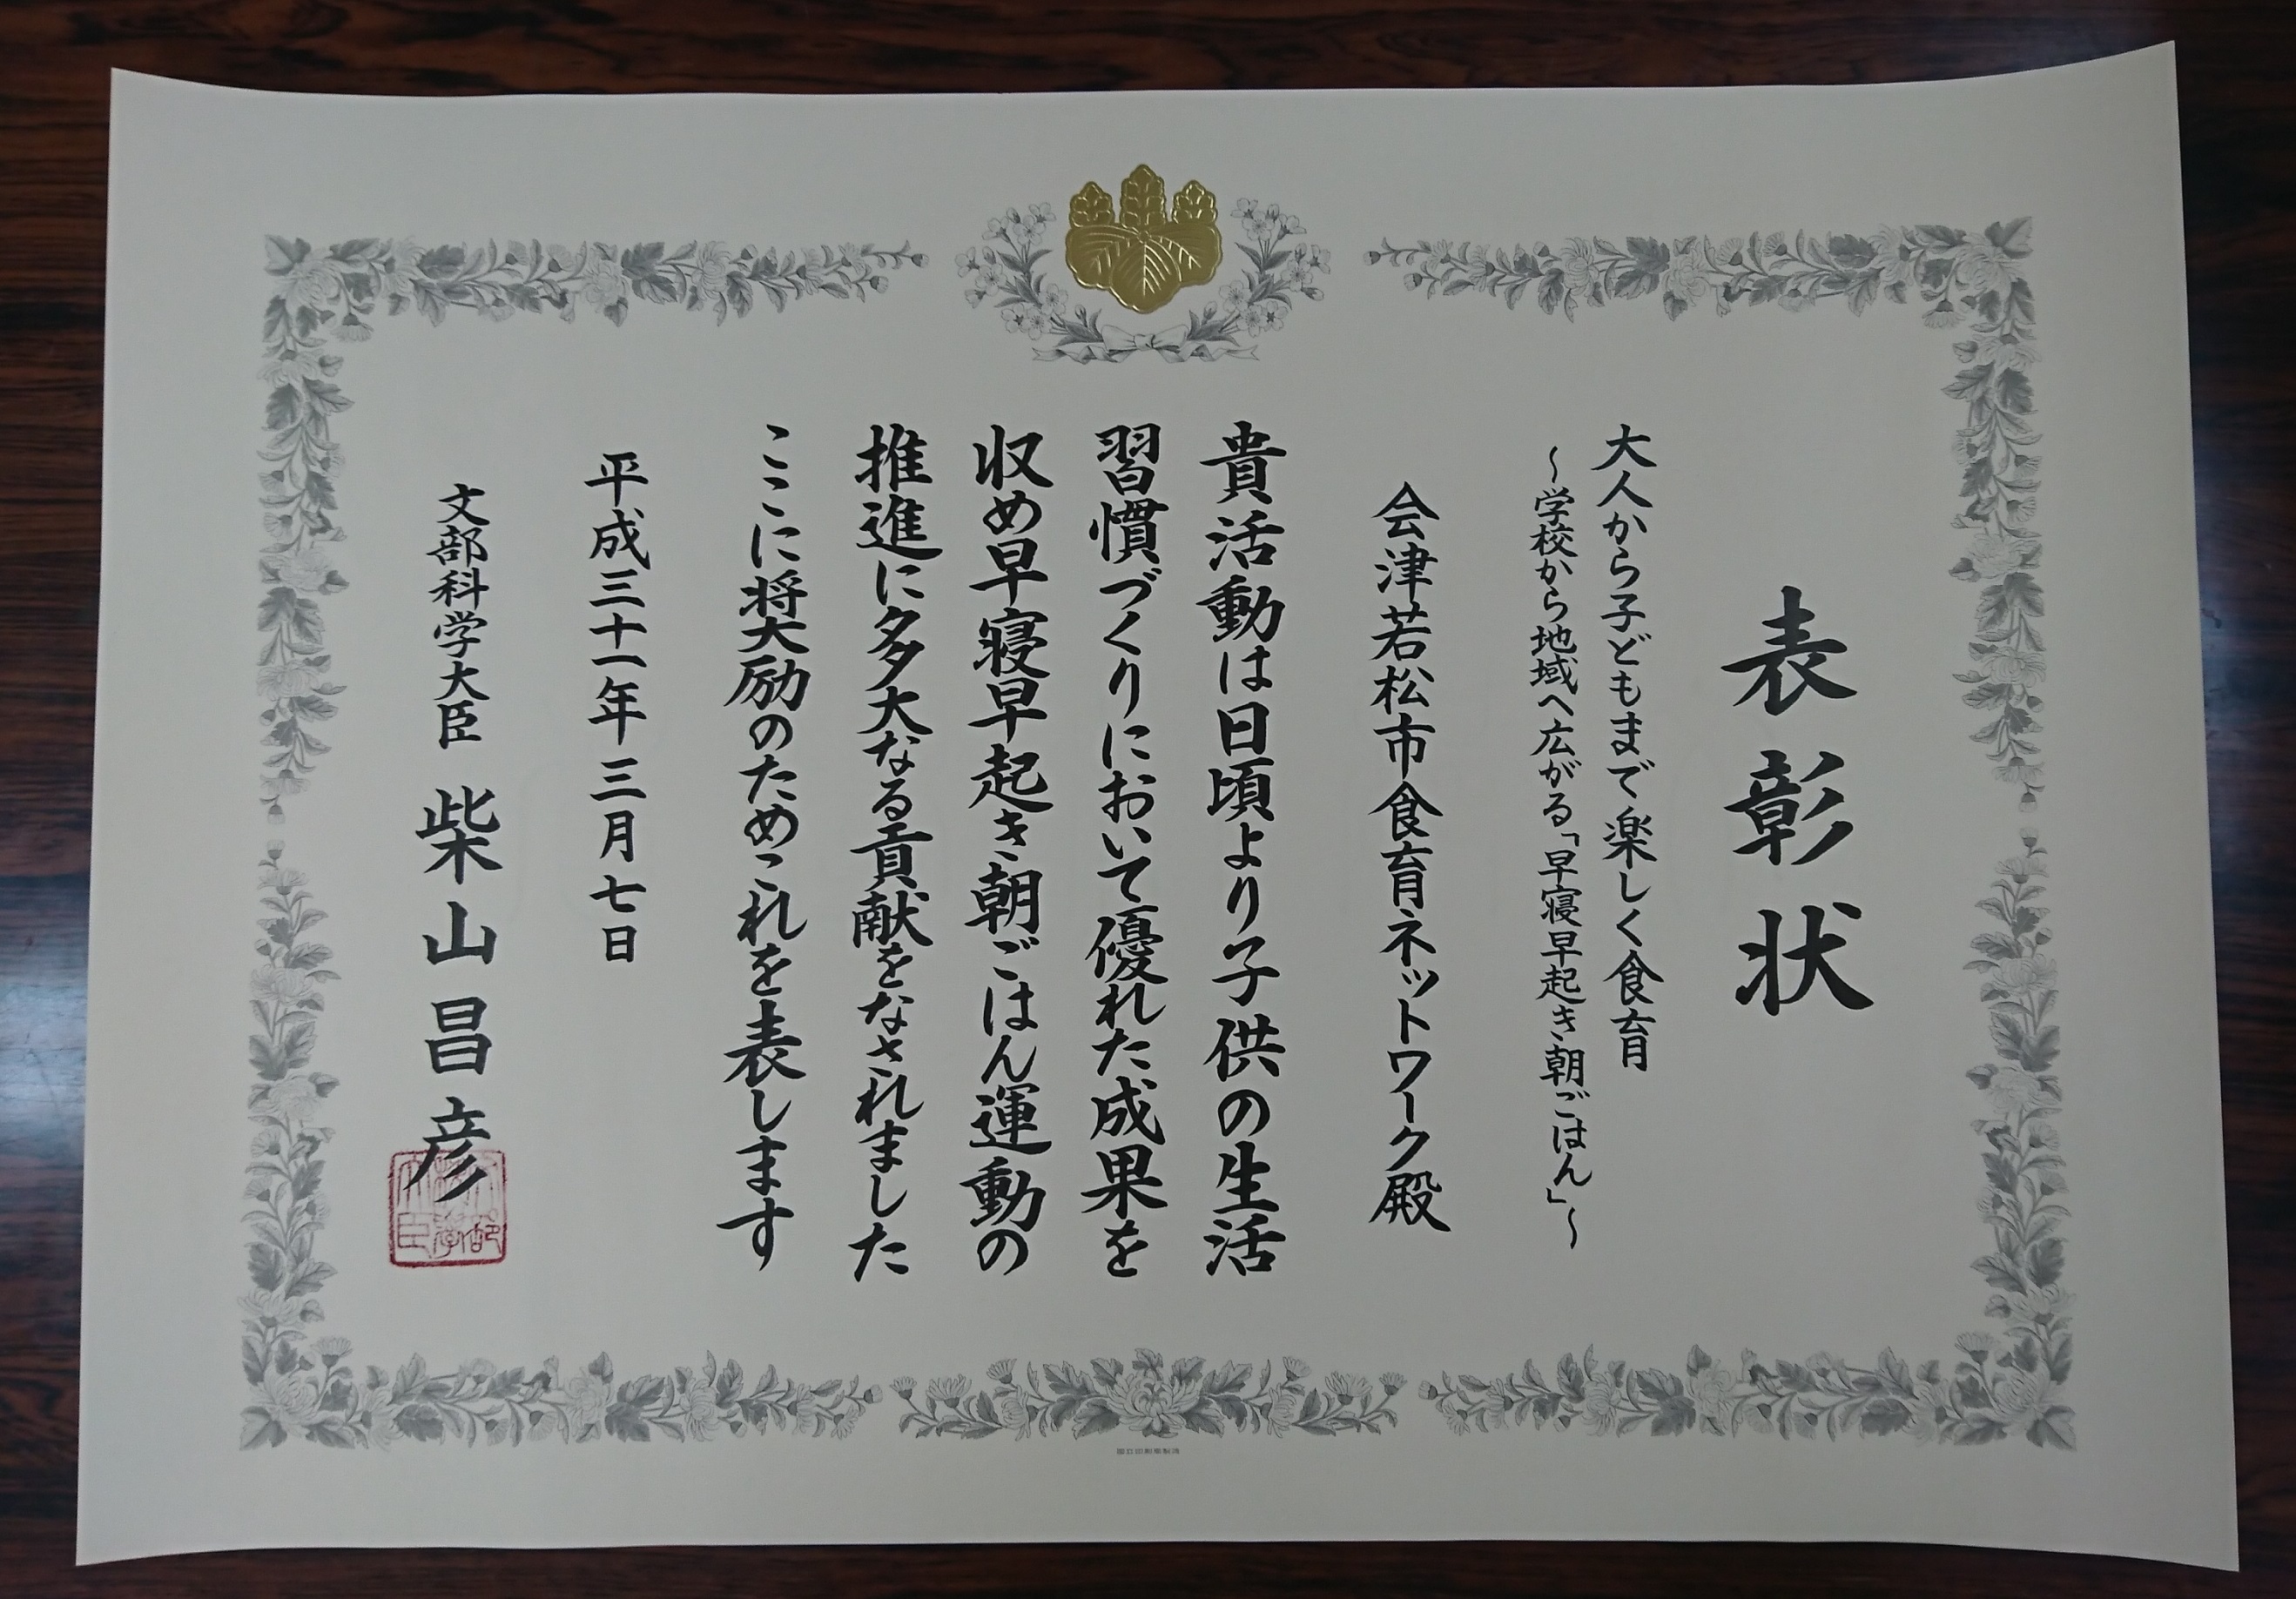 表彰状
大人から子どもまで楽しく食育
～学校から地域へ広がる「早寝早起き朝ごはん」～
会津若松市食育ネットワーク殿
貴活動は日頃より子供の生活
習慣づくりにおいて優れた成果を
収め早寝早起き朝ごはん運動の
推進に多大なる貢献をなされました
ここに奨励のためこれを表します
平成三十一年三月七日
文部科学大臣 柴山昌彦
国立印刷局製造